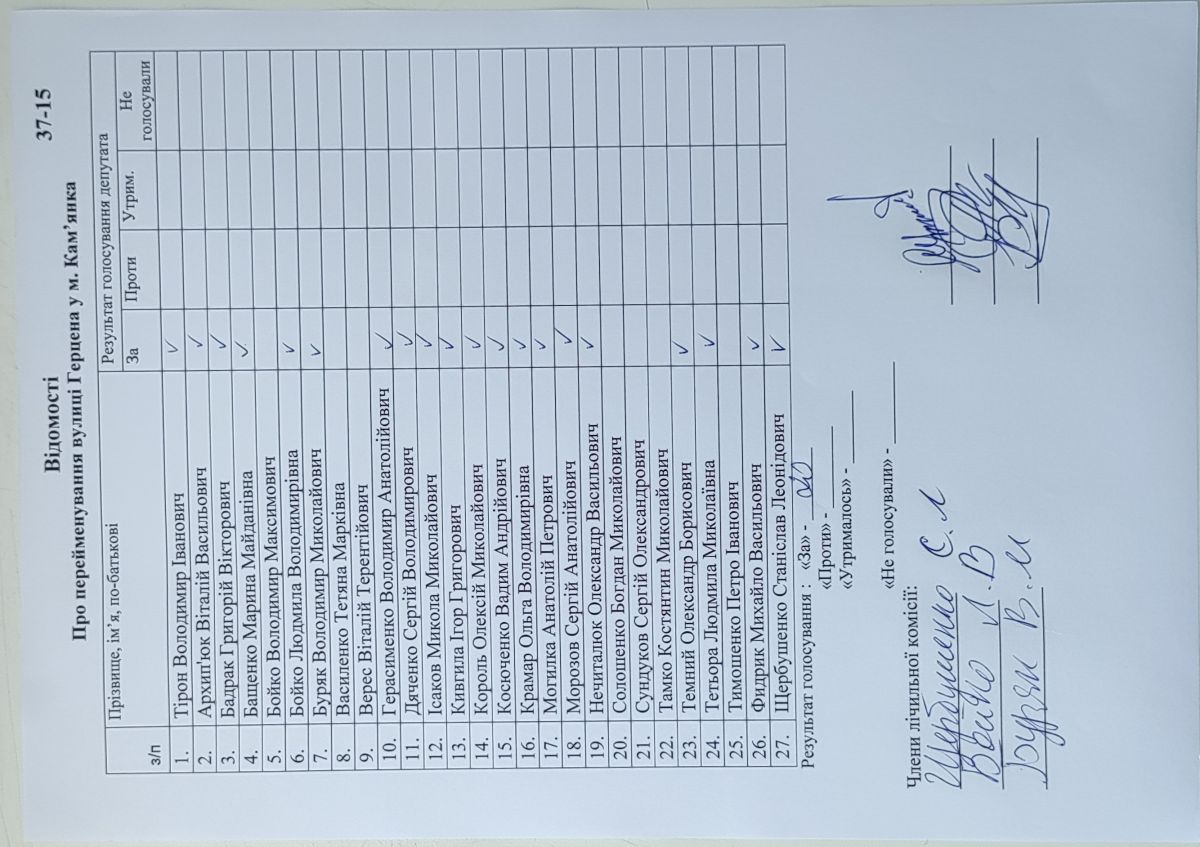 37-15
Відомості
Про перейменування вулиці Герцена у м. Кам’янка
з/п Прізвище, ім’я, по-батькові Результат голосування депутата
За Проти Утрим. Не голосували
1. Тірон Володимир Іванович ✓
2. Архип'юк Віталій Васильович ✓
3. Бадрак Григорій Вікторович ✓
4. Бащенко Марина Майданівна ✓
5. Бойко Володимир Максимович
6. Бойко Людмила Володимирівна ✓
7. Буряк Володимир Миколайович ✓
8. Василенко Тетяна Марківна
9. Верес Віталій Терентійович
10. Герасименко Володимир Анатолійович ✓
11. Дяченко Сергій Володимирович ✓
12. Ісаков Микола Миколайович ✓
13. Кивгила Ігор Григорович ✓
14. Король Олексій Миколайович ✓
15. Косюченко Вадим Андрійович ✓
16. Крамар Ольга Володимирівна ✓
17. Могилка Анатолій Петрович ✓
18. Морозов Сергій Анатолійович ✓
19. Нечиталюк Олександр Васильович ✓
20. Солошенко Богдан Миколайович
21. Сундуков Сергій Олександрович
22. Тамко Костянтин Миколайович
23. Темний Олександр Борисович ✓
24. Тетьора Людмила Миколаївна ✓
25. Тимошенко Петро Іванович
26. Фидрик Михайло Васильович ✓
27. Щербушенко Станіслав Леонідович ✓
Результат голосування : «За» - 20
«Проти» -
«Утрималось» -
«Не голосували» -
Члени лічильної комісії:
Щербушенко С.Л
Бойко Л.В
В.М